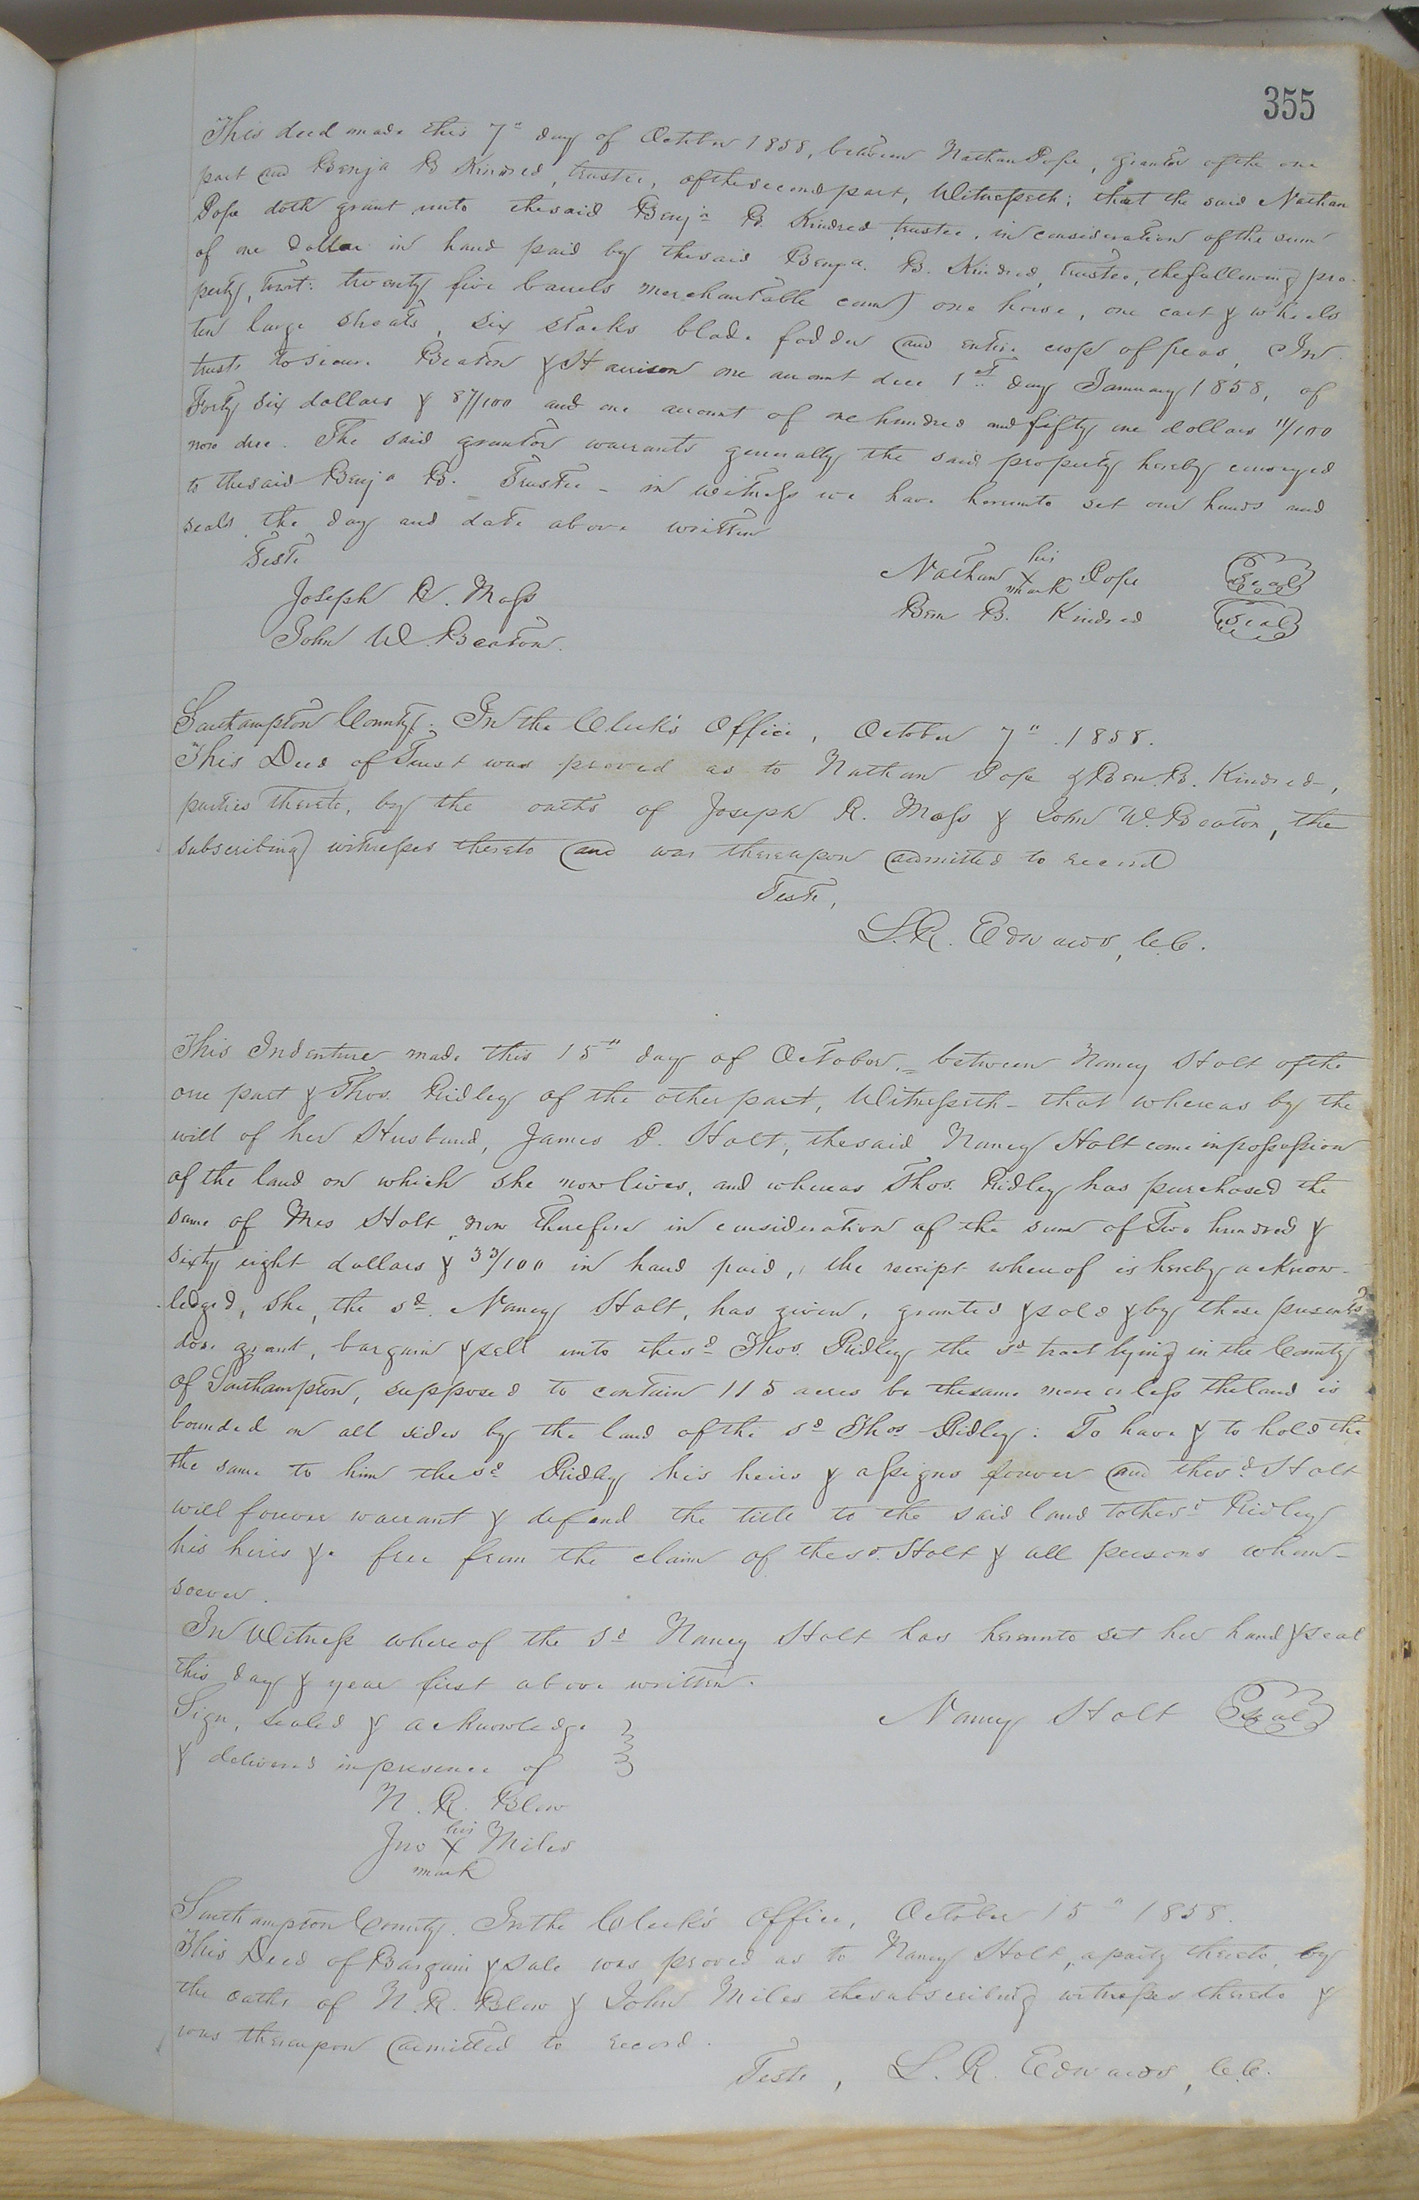 355
This deed made this 7" day of October 1858, between Nathan Pope, grantor of the one
part and Benja B Kindred, trustee, of the second part, Witnesseth; that the said Nathan
Pope doth grant unto the said Benja B. Kindred trustee, in consideration of the sum
of one dollar in hand paid by the said Benja. B. Kindred, Trustee, the following pro-
perty, towit: twenty five barrels merchantable corn, one horse, one cart & wheels
ten large shoats, six stacks blade fodder and entire crop of peas, In
trust to secure Beaton & Harrison one account due 1st day January 1858, of
Forty six dollars & 87/100 and one account of one hundred and fifty one dollars 11/100
now due. The said grantor warrants generally the said property hereby conveyed
to the said Benja B. Trustee - in witness we have hereunto set our hands and
seals the day and date above written
Teste
Nathan his X mark Pope Seal
Joseph R. Mass
Ben B. Kindred Seal
John W. Beaton.
Southampton County. In the Clerk's Office, October 7" 1858.
This Deed of Trust was proved as to Nathan Pope & Ben. B. Kindred,
parties thereto, by the oaths of Joseph R. Mass & John W. Beaton, the
subscribing witnesses thereto and was thereupon admitted to record
Teste,
L. R. Edwards, C.C.
This Indenture made this 15" day of October, between Nancy Holt of the
one part & Thos. Ridley of the other part, Witnesseth - that whereas by the
will of her Husband, James P. Holt, the said Nancy Holt come in possession
of the land on which she now lives, and whereas Thos. Ridley has purchased the
same of Mrs Holt, now therefore in consideration of the sum of Two hundred &
sixty eight dollars & 33/100 in hand paid, the receipt whereof is hereby acknow-
ledged, she, the sd. Nancy Holt, has given, granted & sold & by these presents
does grant, bargain & sell unto the sd Thos. Ridley the sd tract lying in the County
of Southampton, supposed to contain 115 acres be the same more or less the land is
bounded on all sides by the land of the sd Thos Ridley: To have & to hold the
the same to him the sd Ridley his heirs & assigns forever and the sd. Holt
will forever warrant & defend the title to the said land to the sd Ridley
his heirs &c free from the claim of the sd. Holt & all persons whom-
soever.
In Witness whereof the sd Nancy Holt has hereunto set her hand & seal
this day & year first above written.
Nancy Holt Seal
Sign, sealed & acknowledge
& delivered in presence of
N. R. Blow
Jno his X mark Miles
Southampton County. In the Clerk's Office, October 15" 1858.
This Deed of Bargain & Sale was proved as to Nancy Holt, a party thereto, by
the oaths of N. R. Blow & John Miles the subscribing witnesses thereto &
was thereupon admitted to record.
Teste, L. R. Edwards, C.C.